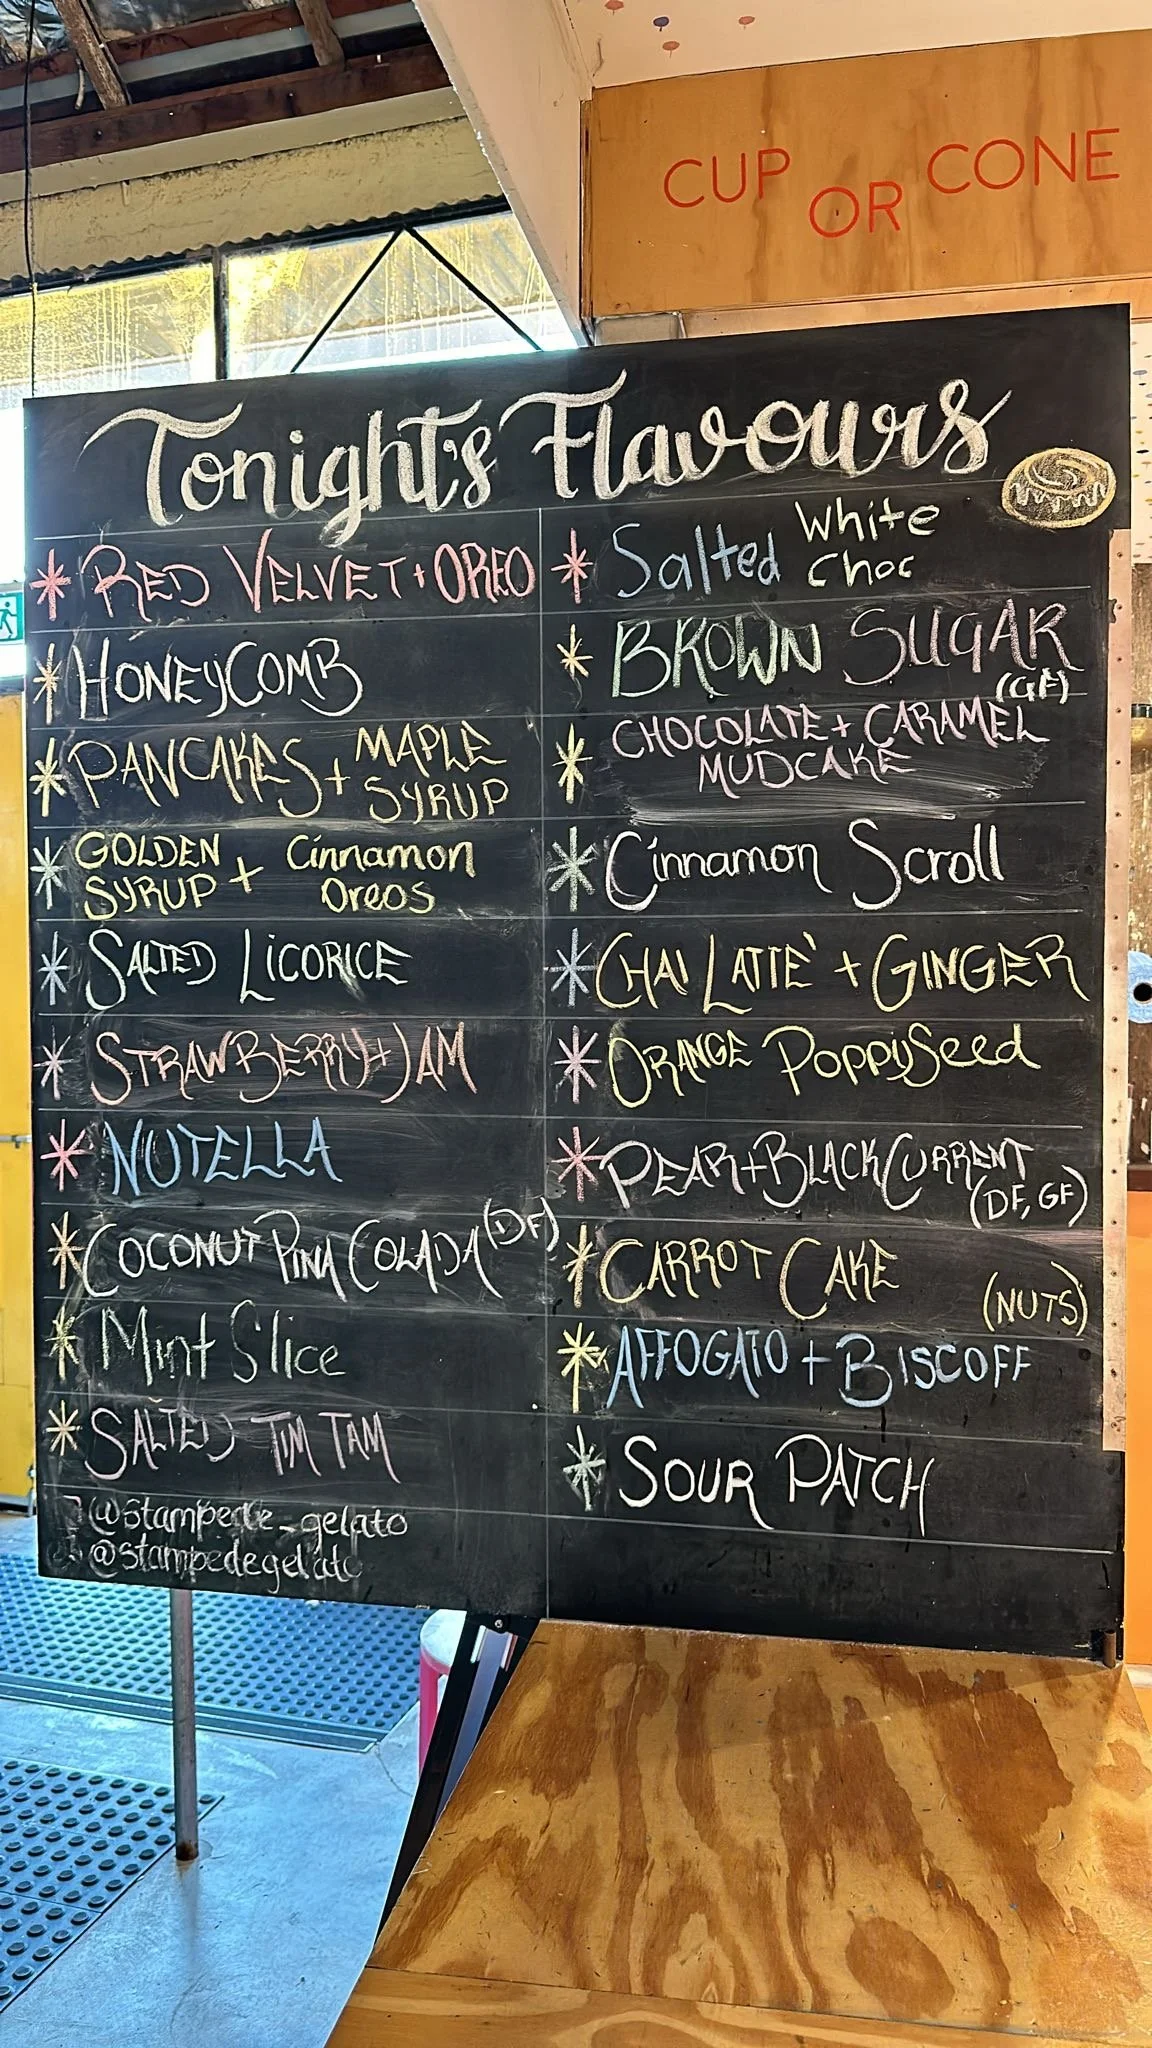 CUP OR CONE
Tonight's Flavours
RED VELVET + OREO
HONEYCOMB
PANCAKES + MAPLE
SYRUP
GOLDEN
SYRUP + Cinnamon
Oreos
SALTED LICORICE
STRAWBERRY + JAM
NUTELLA
COCONUT PINA COLADA (DF)
Mint Slice
SALTED TIM TAM
@stampede_gelato
@stampedegelato
Salted White
Choc
BROWN SUGAR
(GF)
CHOCOLATE + CARAMEL
MUDCAKE
Cinnamon Scroll
CHAI LATTE` + GINGER
ORANGE POPPYSeed
PEAR + BLACKCURRENT
(DF, GF)
CARROT CAKE
(NUTS)
AFFOGATO + BISCOFF
SOUR PATCH